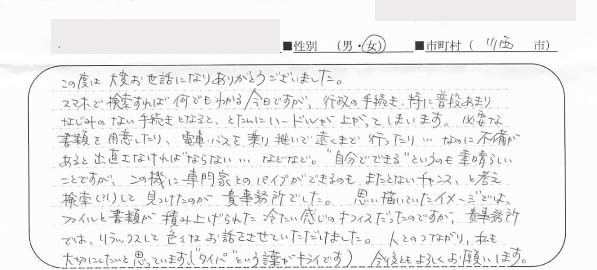 ■性別 （男・女） ■市町村（ 川西 市）
この度は 大変お世話になりありがとうございました。
スマホで検索すれば何でもわかる今日ですが、行政の手続き、特に普段あまり
なじみのない手続きとなると、とたんにハードルが上がってしまいます。必要な
書類を用意したり、電車・バスを乗り継いで遠くまで行ったり… なのに不備が
あると出直さなければならない… などなど。"自分でできる"というのも素晴らしい
ことですが、この機に専門家とのパイプができるのも、またとないチャンス、と考え
検索して見つけたのが貴事務所でした。思い描いていたイメージでは、
ファイルと書類が積み上げられた冷たい感じのオフィスだったのですが、貴事務所
では、リラックスして色々なお話させていただけました。人とのつながり、私も
大切にしたいと思っています。("タイパ"という言葉がキライです) 今後ともよろしくお願いします。